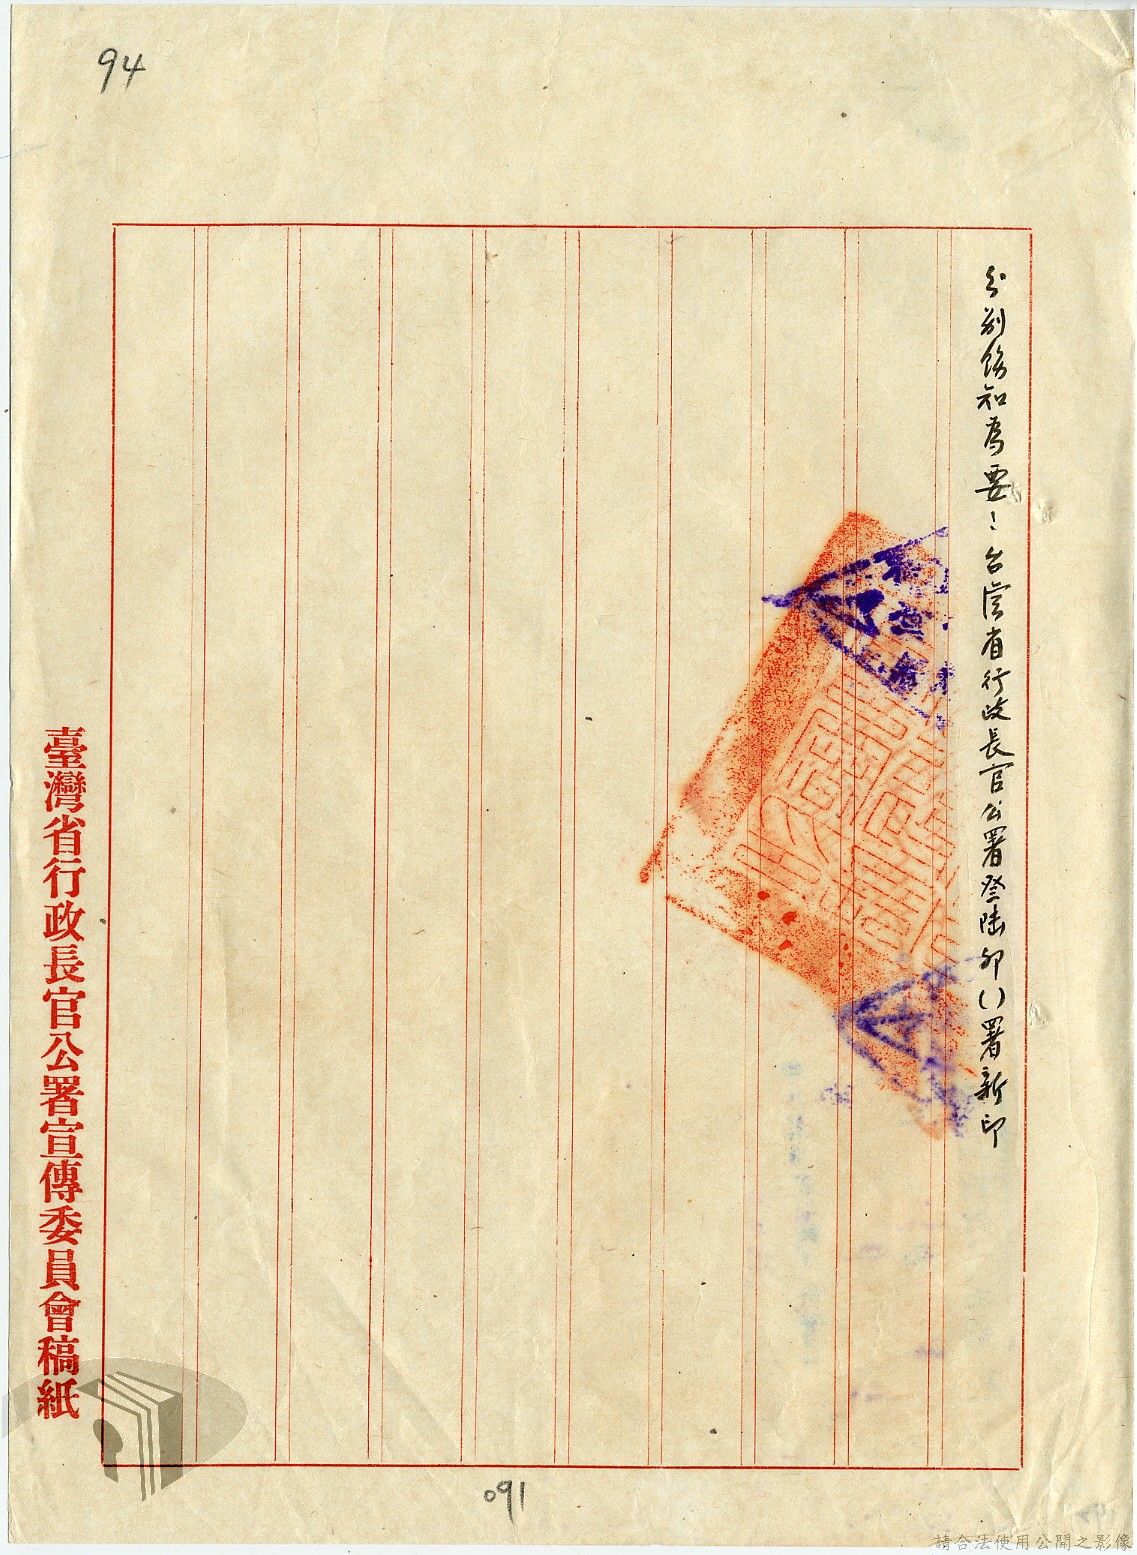 94
分別飭知為要！台灣省行政長官公署叄陸卯（）署新印
臺灣省行政長官公署宣傳委員會稿紙
091
請合法使用公開之影像